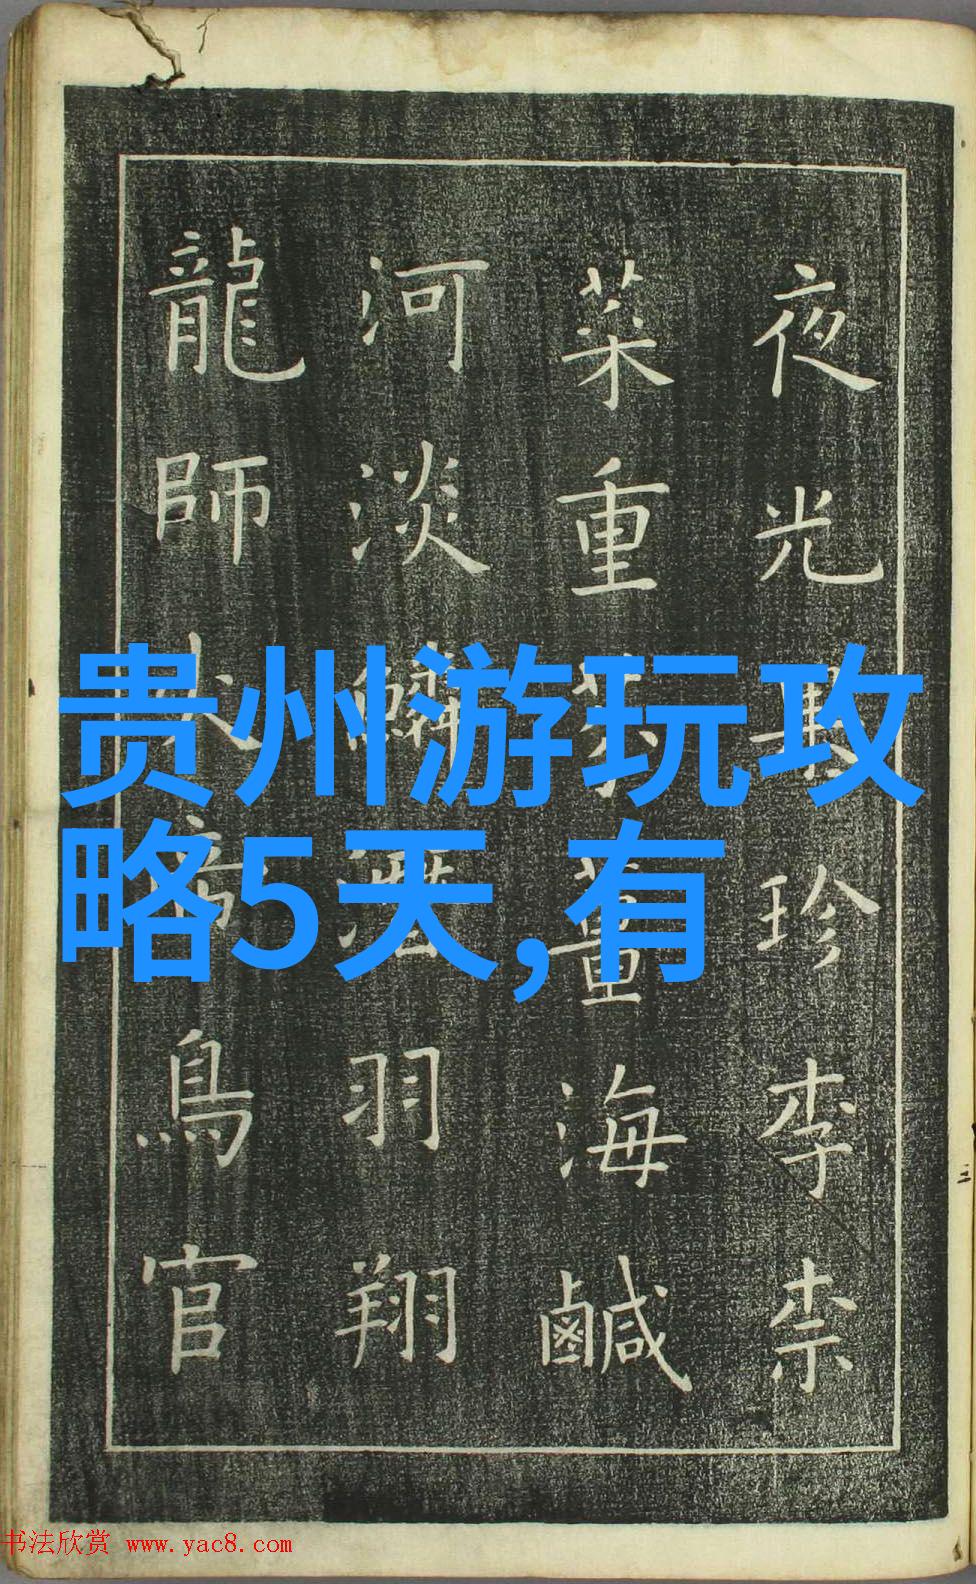 夜光果珍李柰
菜重芥薑海鹹
河淡鱗潛羽翔
龍師火帝鳥官
贵州游玩攻
略5天,有
书法欣赏 www.yac8.com